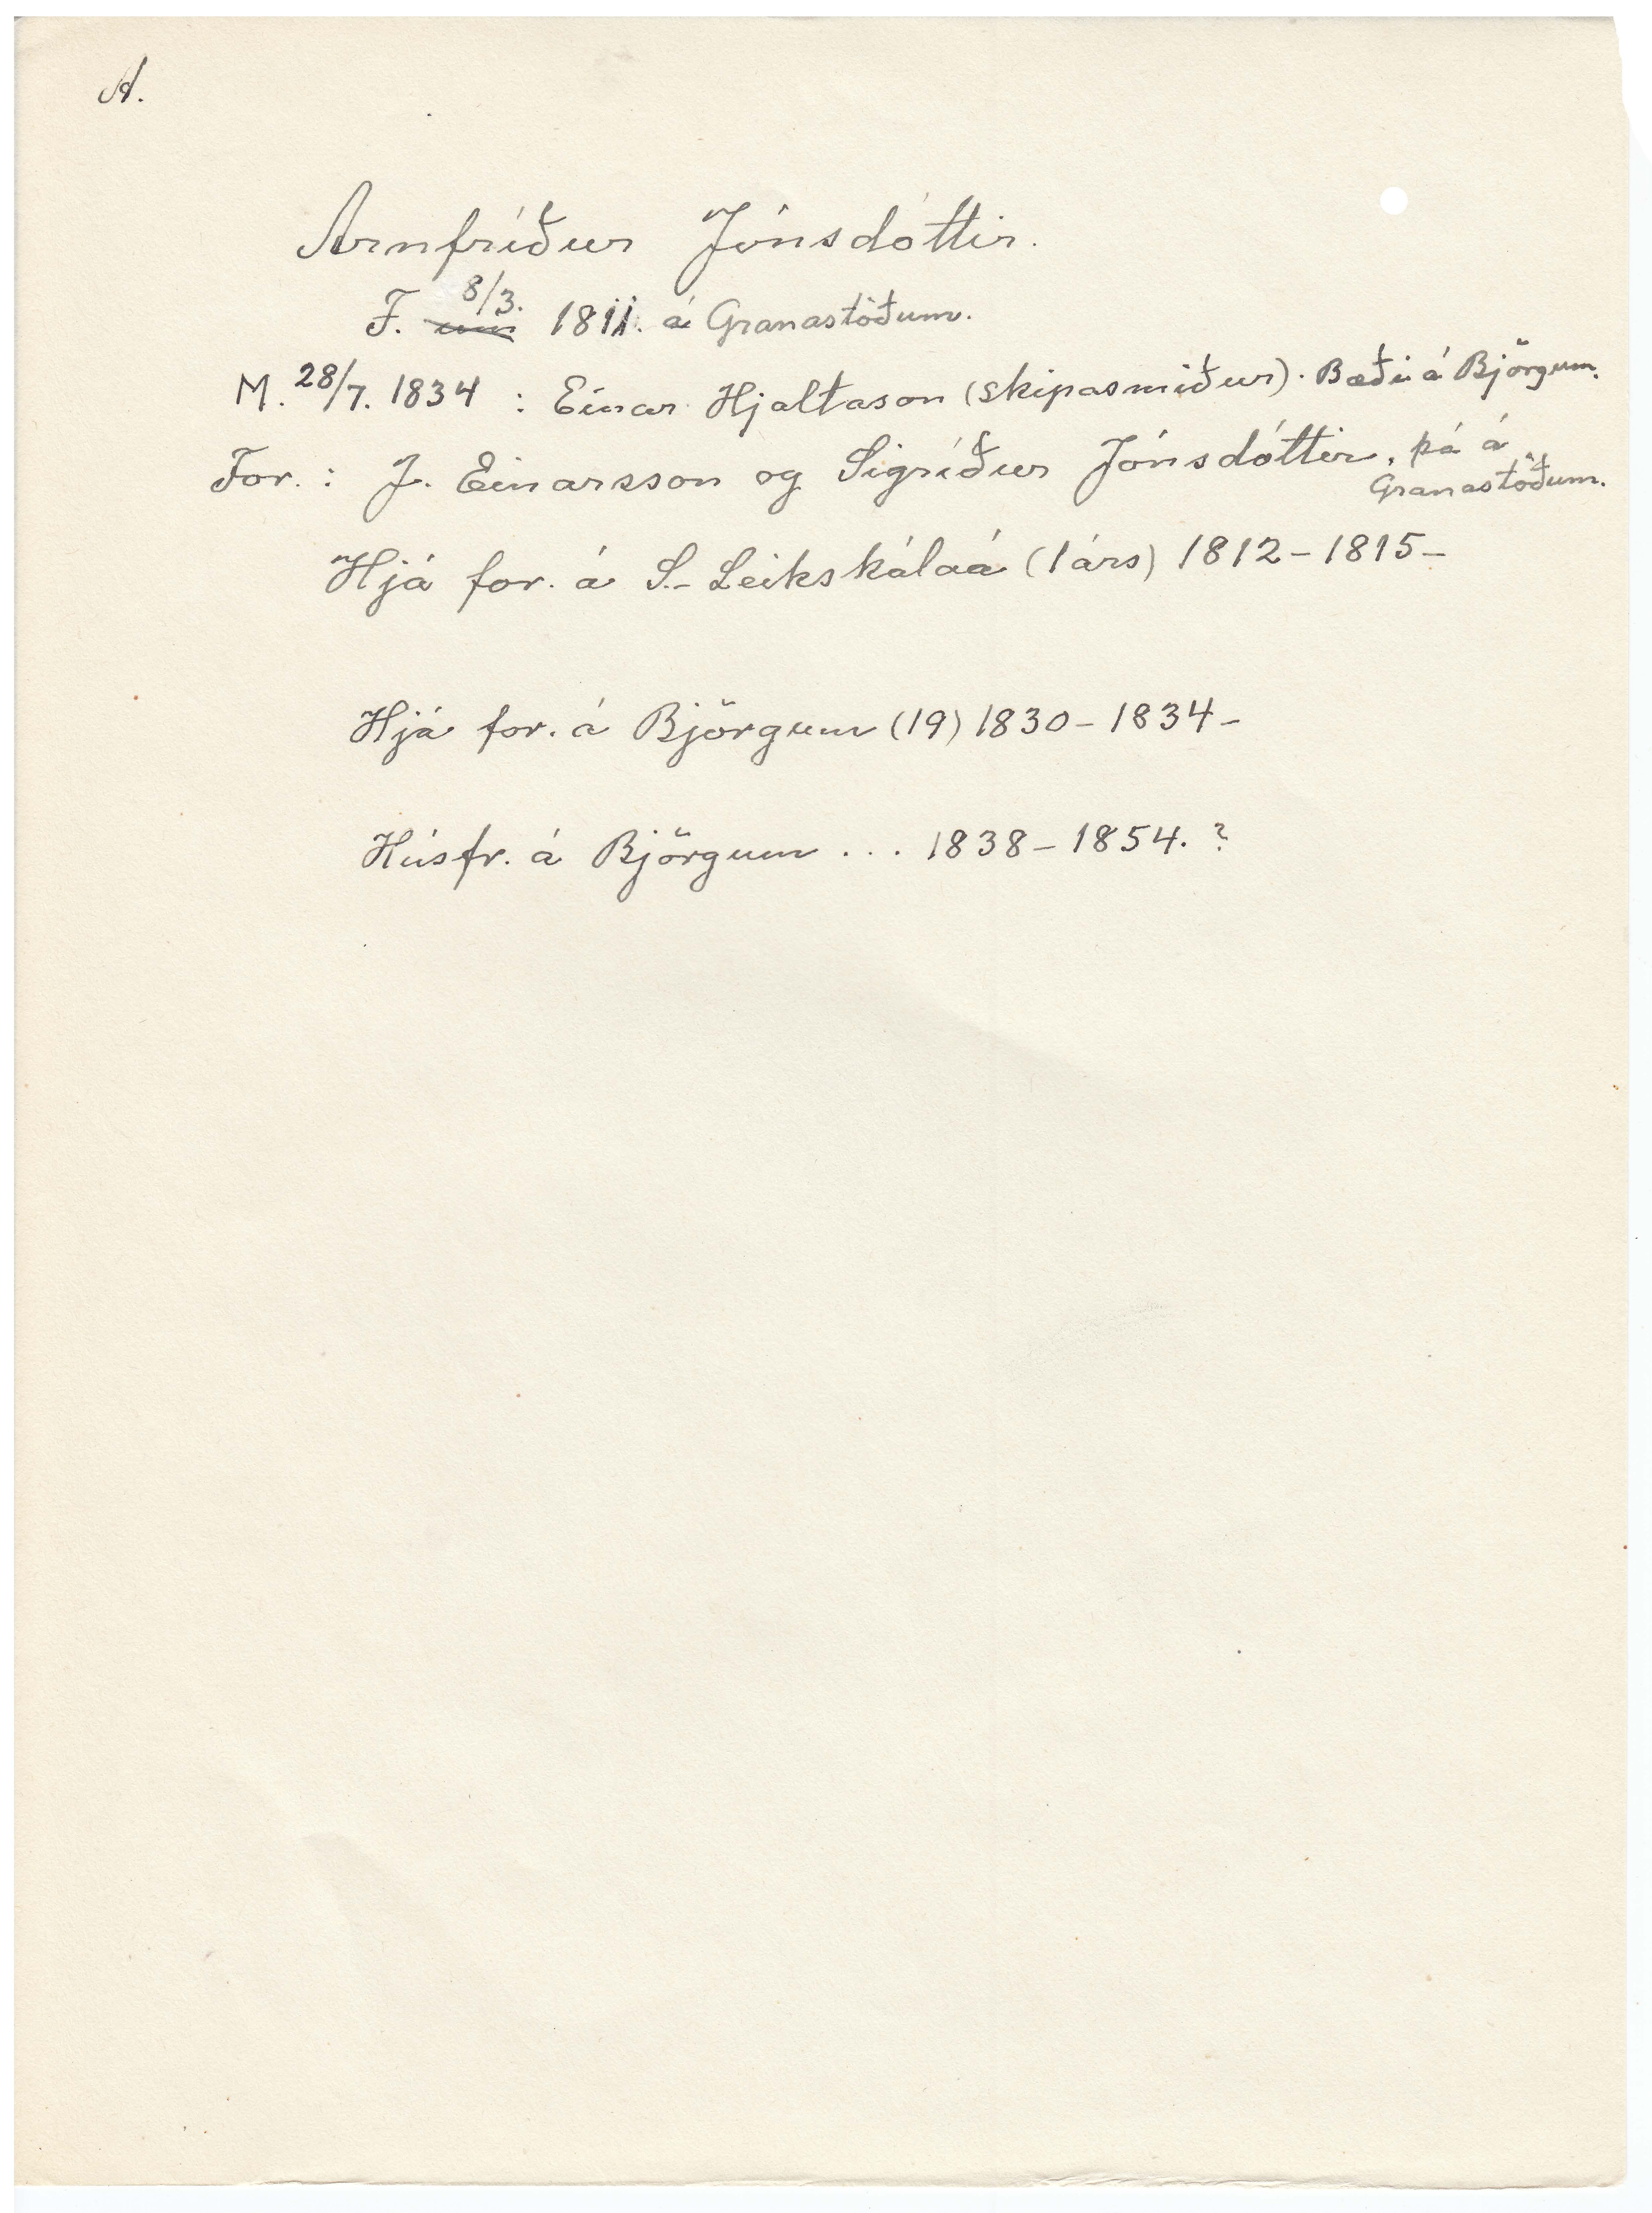 A.
Arnfríður Jónsdóttir.
F. 8/3. 1811. á Granastöðum.
M. 28/7. 1834 : Einar Hjaltason (skipasmiður). Bæði á Björgum.
For. : J. Einarsson og Sigríður Jónsdóttir, þá á
Granastöðum.
Hjá for. á S.- Leikskálaá (1 árs) 1812 - 1815 -
Hjá for. á Björgum (19) 1830 - 1834 -
Húsfr. á Björgum . . . 1838 - 1854. ?